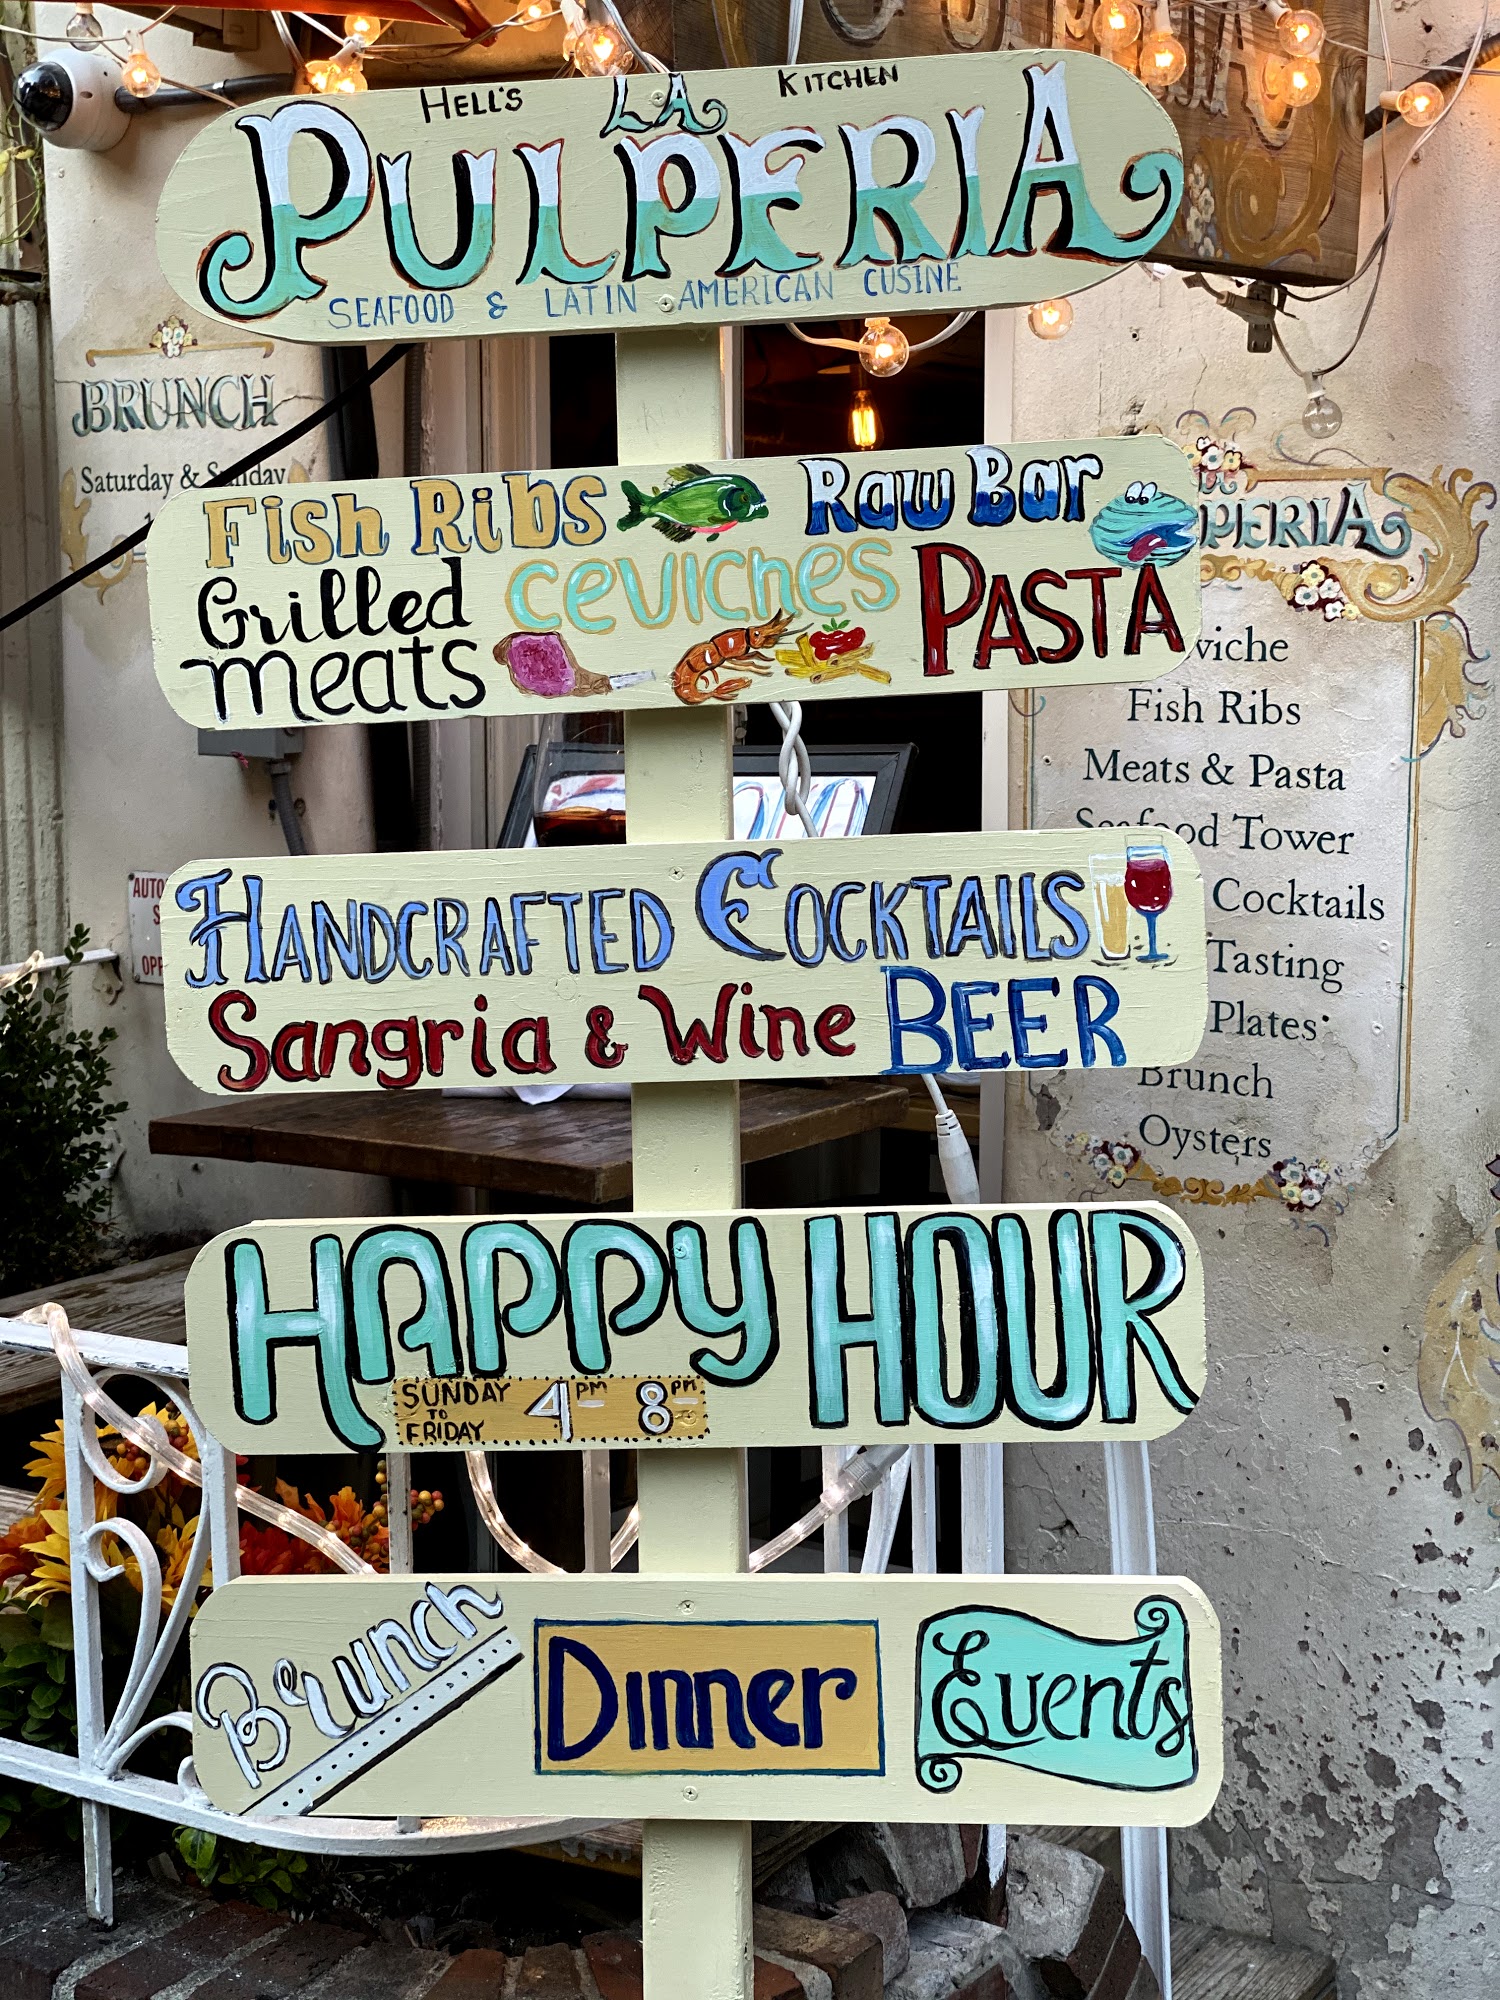 HELL'S LA KITCHEN
PULPERIA
SEAFOOD & LATIN AMERICAN CUSINE
Fish Ribs Raw Bar
Grilled meats ceviches PASTA
HANDCRAFTED COCKTAILS
Sangria & Wine BEER
HAPPY HOUR
SUNDAY TO FRIDAY 4PM 8PM
Brunch Dinner Events
BRUNCH
Saturday & Sunday
AUTO
OPP
PERIA
viche
Fish Ribs
Meats & Pasta
Seafood Tower
Cocktails
Tasting
Plates
Brunch
Oysters